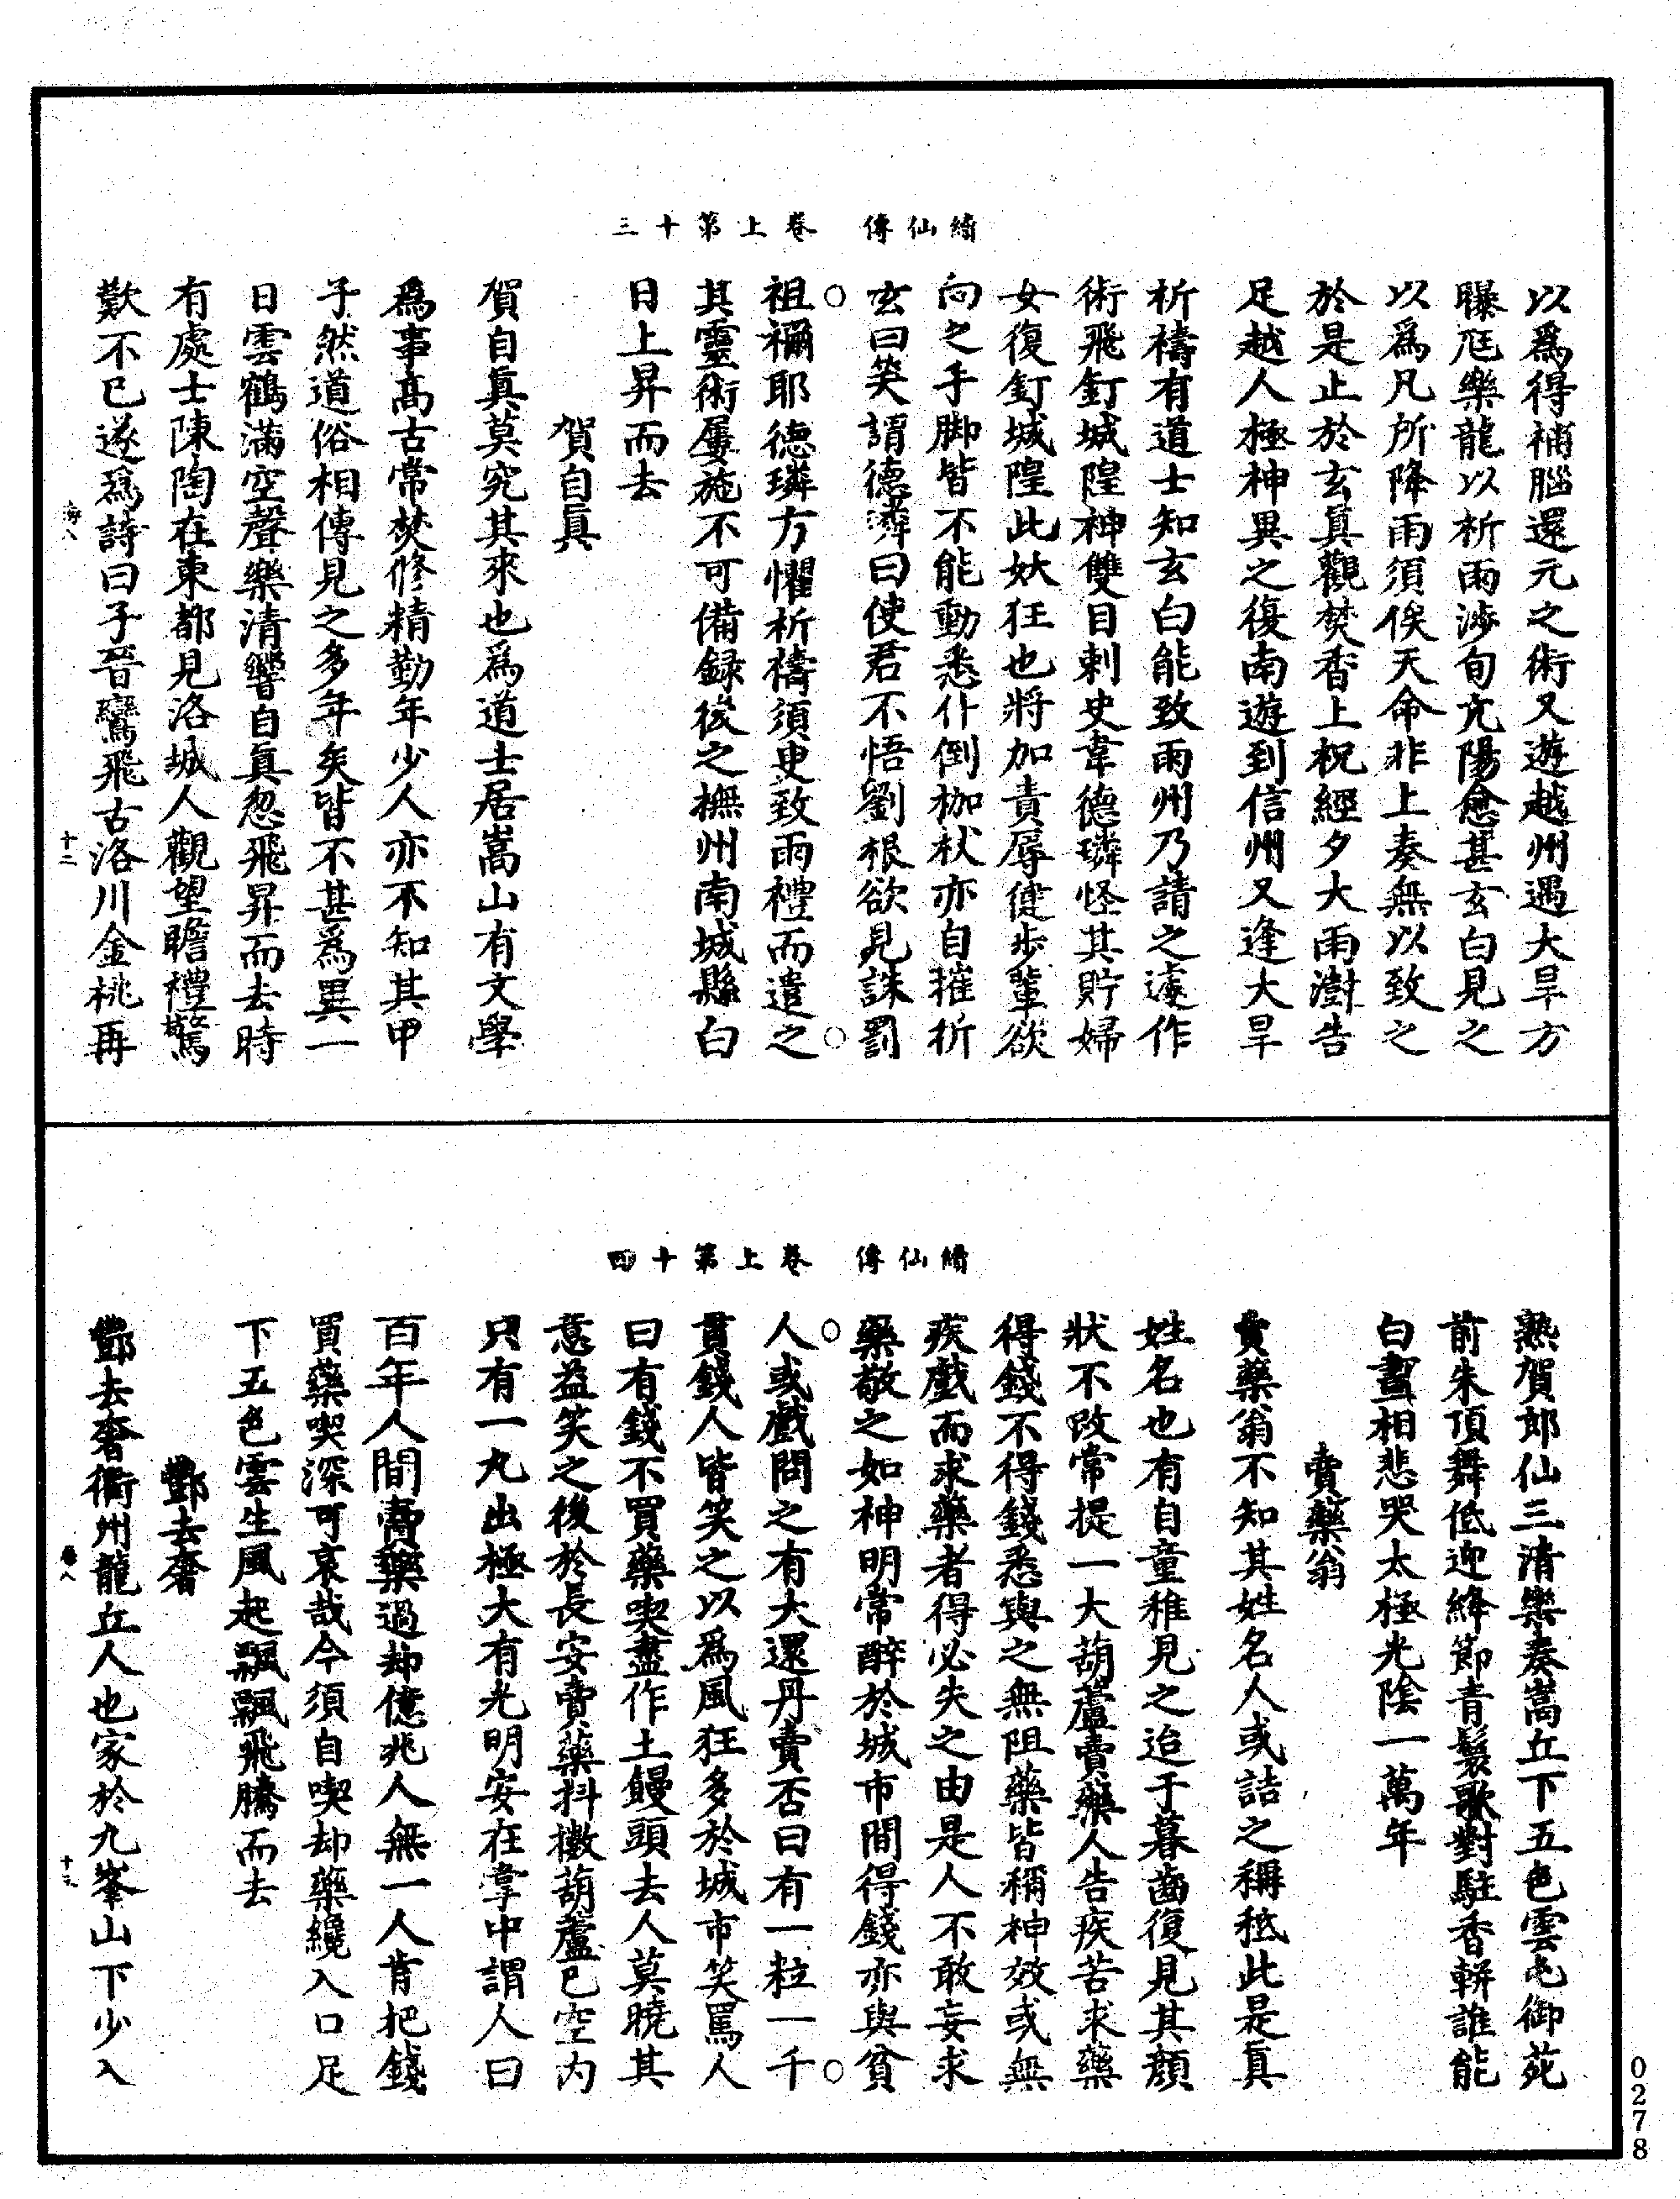 續仙傳　卷上第十三
以爲得補腦還元之術又遊越州遇大旱方
曝尫樂龍以祈雨涉旬亢陽愈甚玄白見之
以爲凡所降雨須俟天命非上奏無以致之
於是止於玄眞觀焚香上祝經夕大雨澍告
足越人極神異之復南遊到信州又逢大旱
祈禱有道士知玄白能致雨州乃請之遽作
術飛釘城隍神雙目刺史韋德璘怪其貯婦
女復釘城隍此妖狂也將加責辱健步輩欲
向之手脚皆不能動悉仆倒枷杖亦自摧折
玄曰笑謂德璘曰使君不悟劉根欲見誅罰
祖禰耶德璘方懼祈禱須臾致雨禮而遣之
其靈術屢施不可備録後之撫州南城縣白
日上昇而去
賀自眞
賀自眞莫究其來也爲道士居嵩山有文學
爲事高古常焚修精勤年少人亦不知其甲
子然道俗相傳見之多年矣皆不甚爲異一
日雲鶴滿空聲樂清響自眞忽飛昇而去時
有處士陳陶在東都見洛城人觀望瞻禮驚
歎不已遂爲詩曰子晉鸞飛古洛川金桃再
海八　十二
續仙傳　卷上第十四
熟賀郎仙三清樂奏嵩丘下五色雲屯御苑
前朱頂舞低迎絳節青鬟歌對駐香軿誰能
白晝相悲哭太極光陰一萬年
賣藥翁
賣藥翁不知其姓名人或詰之稱秪此是眞
姓名也有自童稚見之迨于暮齒復見其顏
狀不改常提一大葫蘆賣藥人告疾苦求藥
得錢不得錢悉與之無阻藥皆稱神效或無
疾戲而求藥者得必失之由是人不敢妄求
藥敬之如神明常醉於城市間得錢亦與貧
人或戲問之有大還丹賣否曰有一粒一千
貫錢人皆笑之以爲風狂多於城市笑罵人
曰有錢不買藥喫盡作土饅頭去人莫曉其
意益笑之後於長安賣藥抖擻葫蘆已空內
只有一丸出極大有光明安在掌中謂人曰
百年人間賣藥過却億兆人無一人肯把錢
買藥喫深可哀哉今須自喫却藥纔入口足
下五色雲生風起飄飄飛騰而去
酆去奢
酆去奢衢州龍丘人也家於九峯山下少入
海八　十三
0278